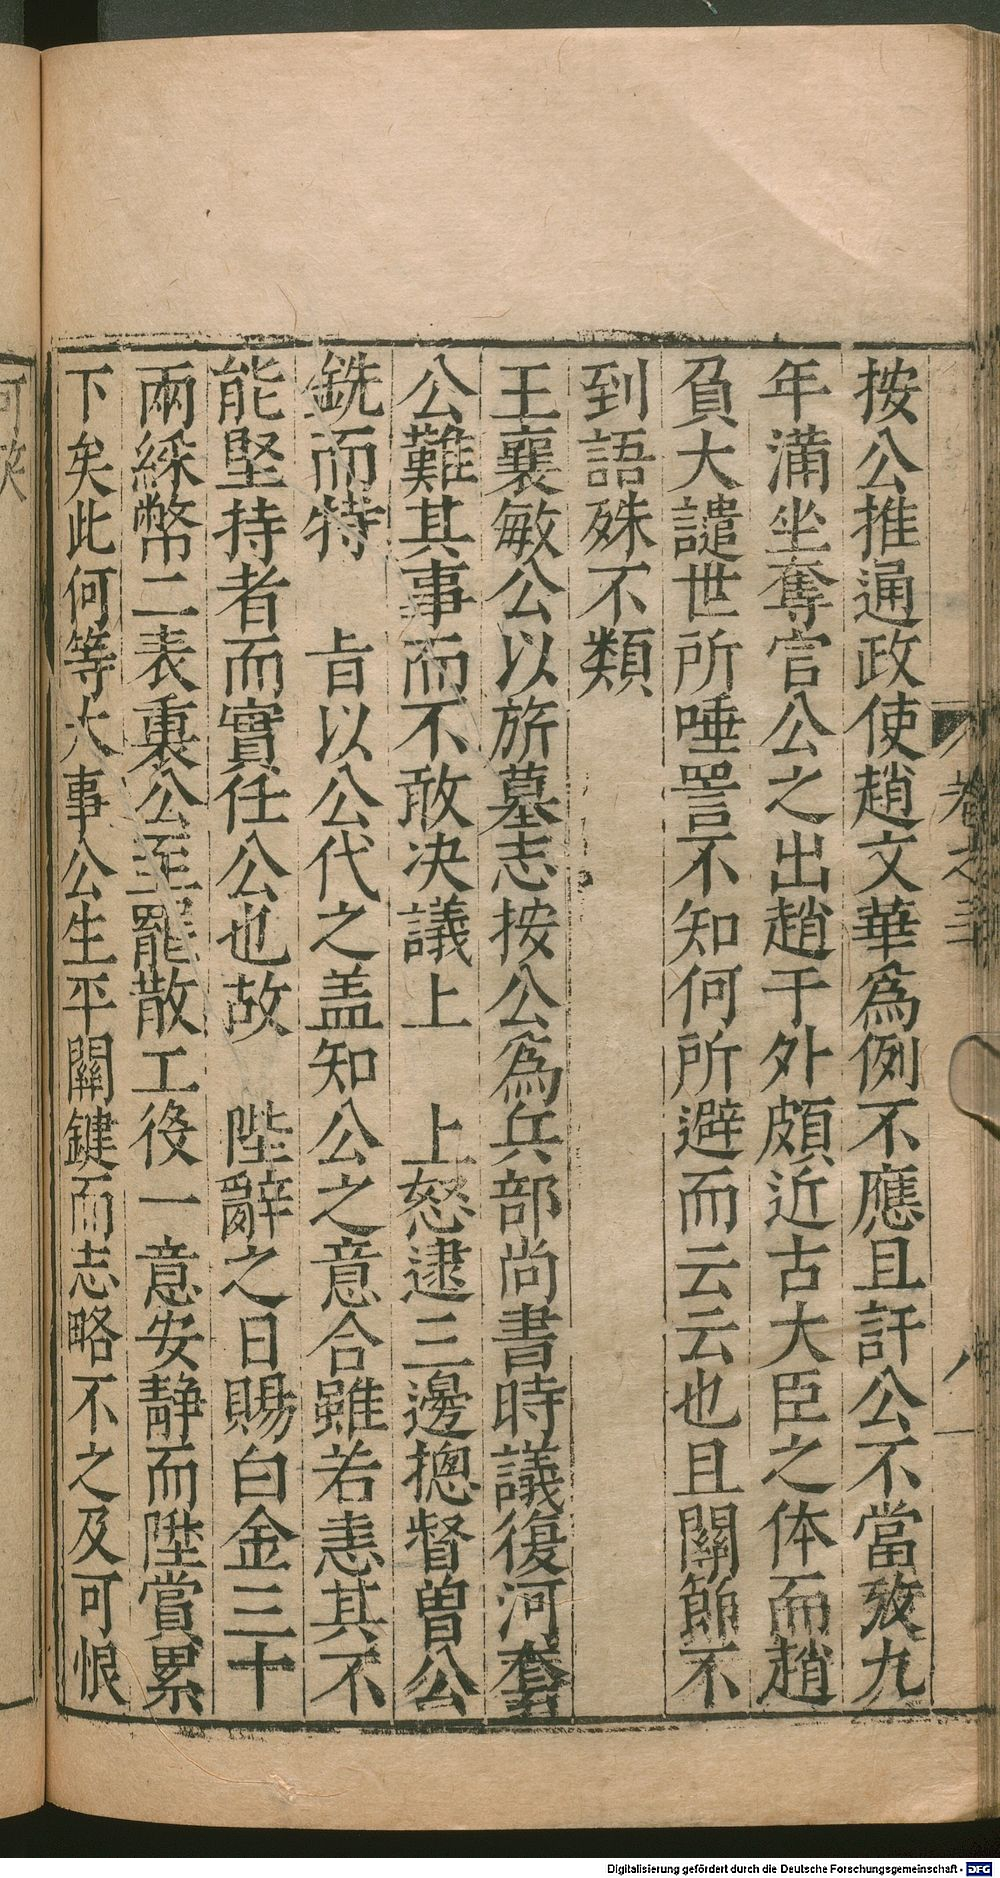 按公推通政使趙文華爲例不應且訐公不當攷九
年滿坐奪官公之出趙于外頗近古大臣之体而趙
負大譴世所唾詈不知何所避而云云也且關節不
到語殊不類
王襄敏公以旂墓志按公爲兵部尚書時議復河套
公難其事而不敢决議上　上怒逮三邊摠督曾公
銑而特　旨以公代之盖知公之意合雖若恚其不
能堅持者而實任公也故　陛辭之日賜白金三十
兩綵幣二表裏公至罷散工役一意安靜而陞賞累
下矣此何等大事公生平關鍵而志略不之及可恨
卷之三
八
Digitalisierung gefördert durch die Deutsche Forschungsgemeinschaft - DFG